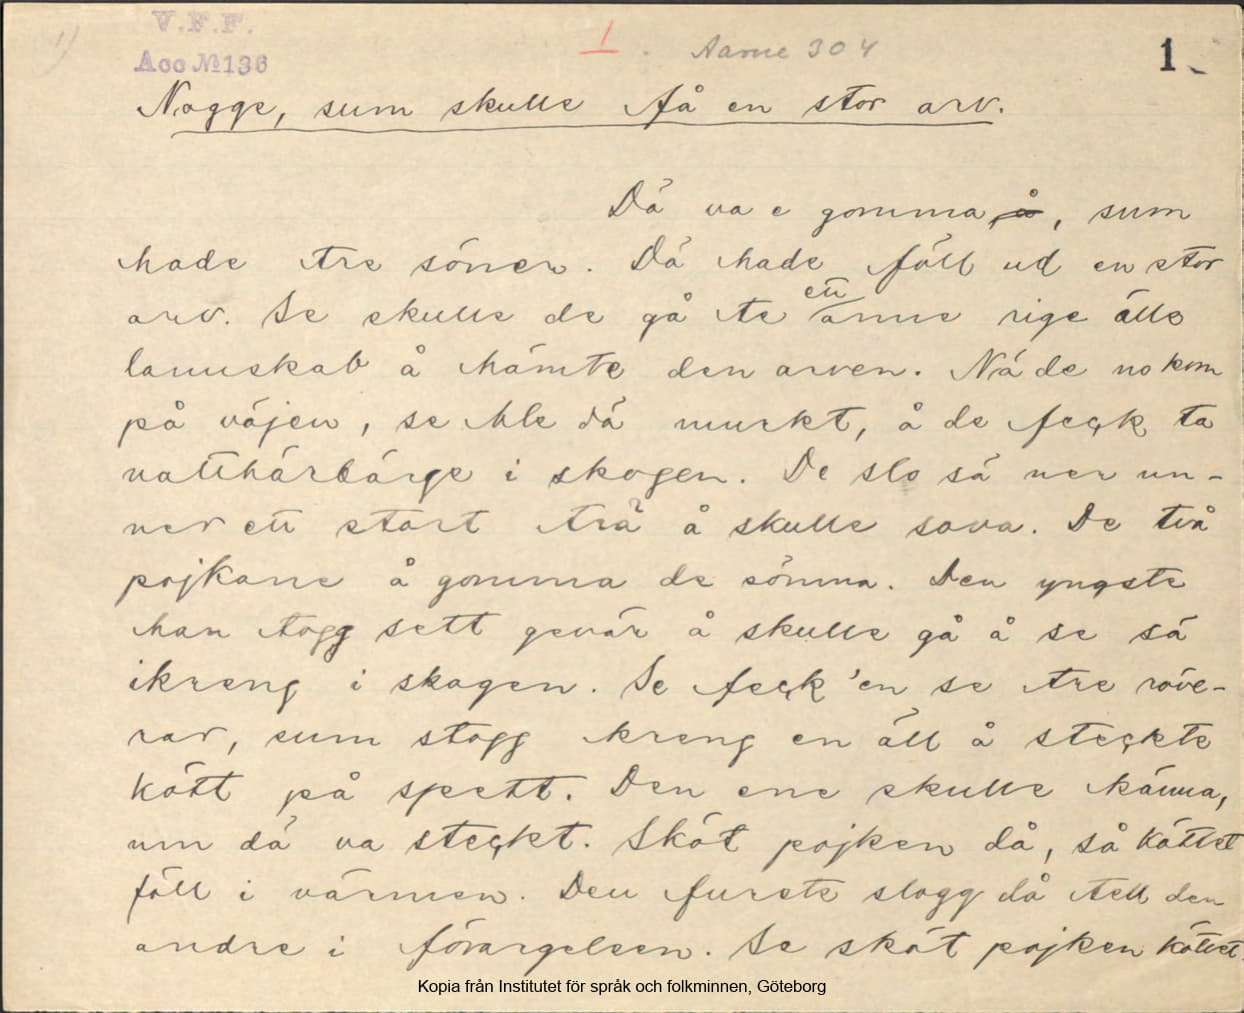 1)
V.F.F.
Acc № 136
1.
Aarne 304
1
Nogge, sum skulle få en stor arv.
Dä va e gomma, sum
hade tre söner. Dä hade föll ud en stor
arv. Se skulle de gå te ett änne rige älle
lannskab å hämte den arven. Nä de no kom
på väjen, se ble dä murkt, å de feçk ta
natthärbärge i skogen. De slo sä ner un-
ner ett stort trä å skulle sova. De två
pojkane å gomma de sömna. Den yngste
han togg sett gevär å skulle gå å se sä
ikreng i skogen. Se feçk 'en se tre röve-
rar, sum stogg kreng en äll å steçkte
kött på spett. Den ene skulle känna,
um dä va steçkt. Sköt pojken då, så köttet
föll i värmen. Den furste slogg då tell den
andre i förargelsen. Se sköt pojken köttet
Kopia från Institutet för språk och folkminnen, Göteborg